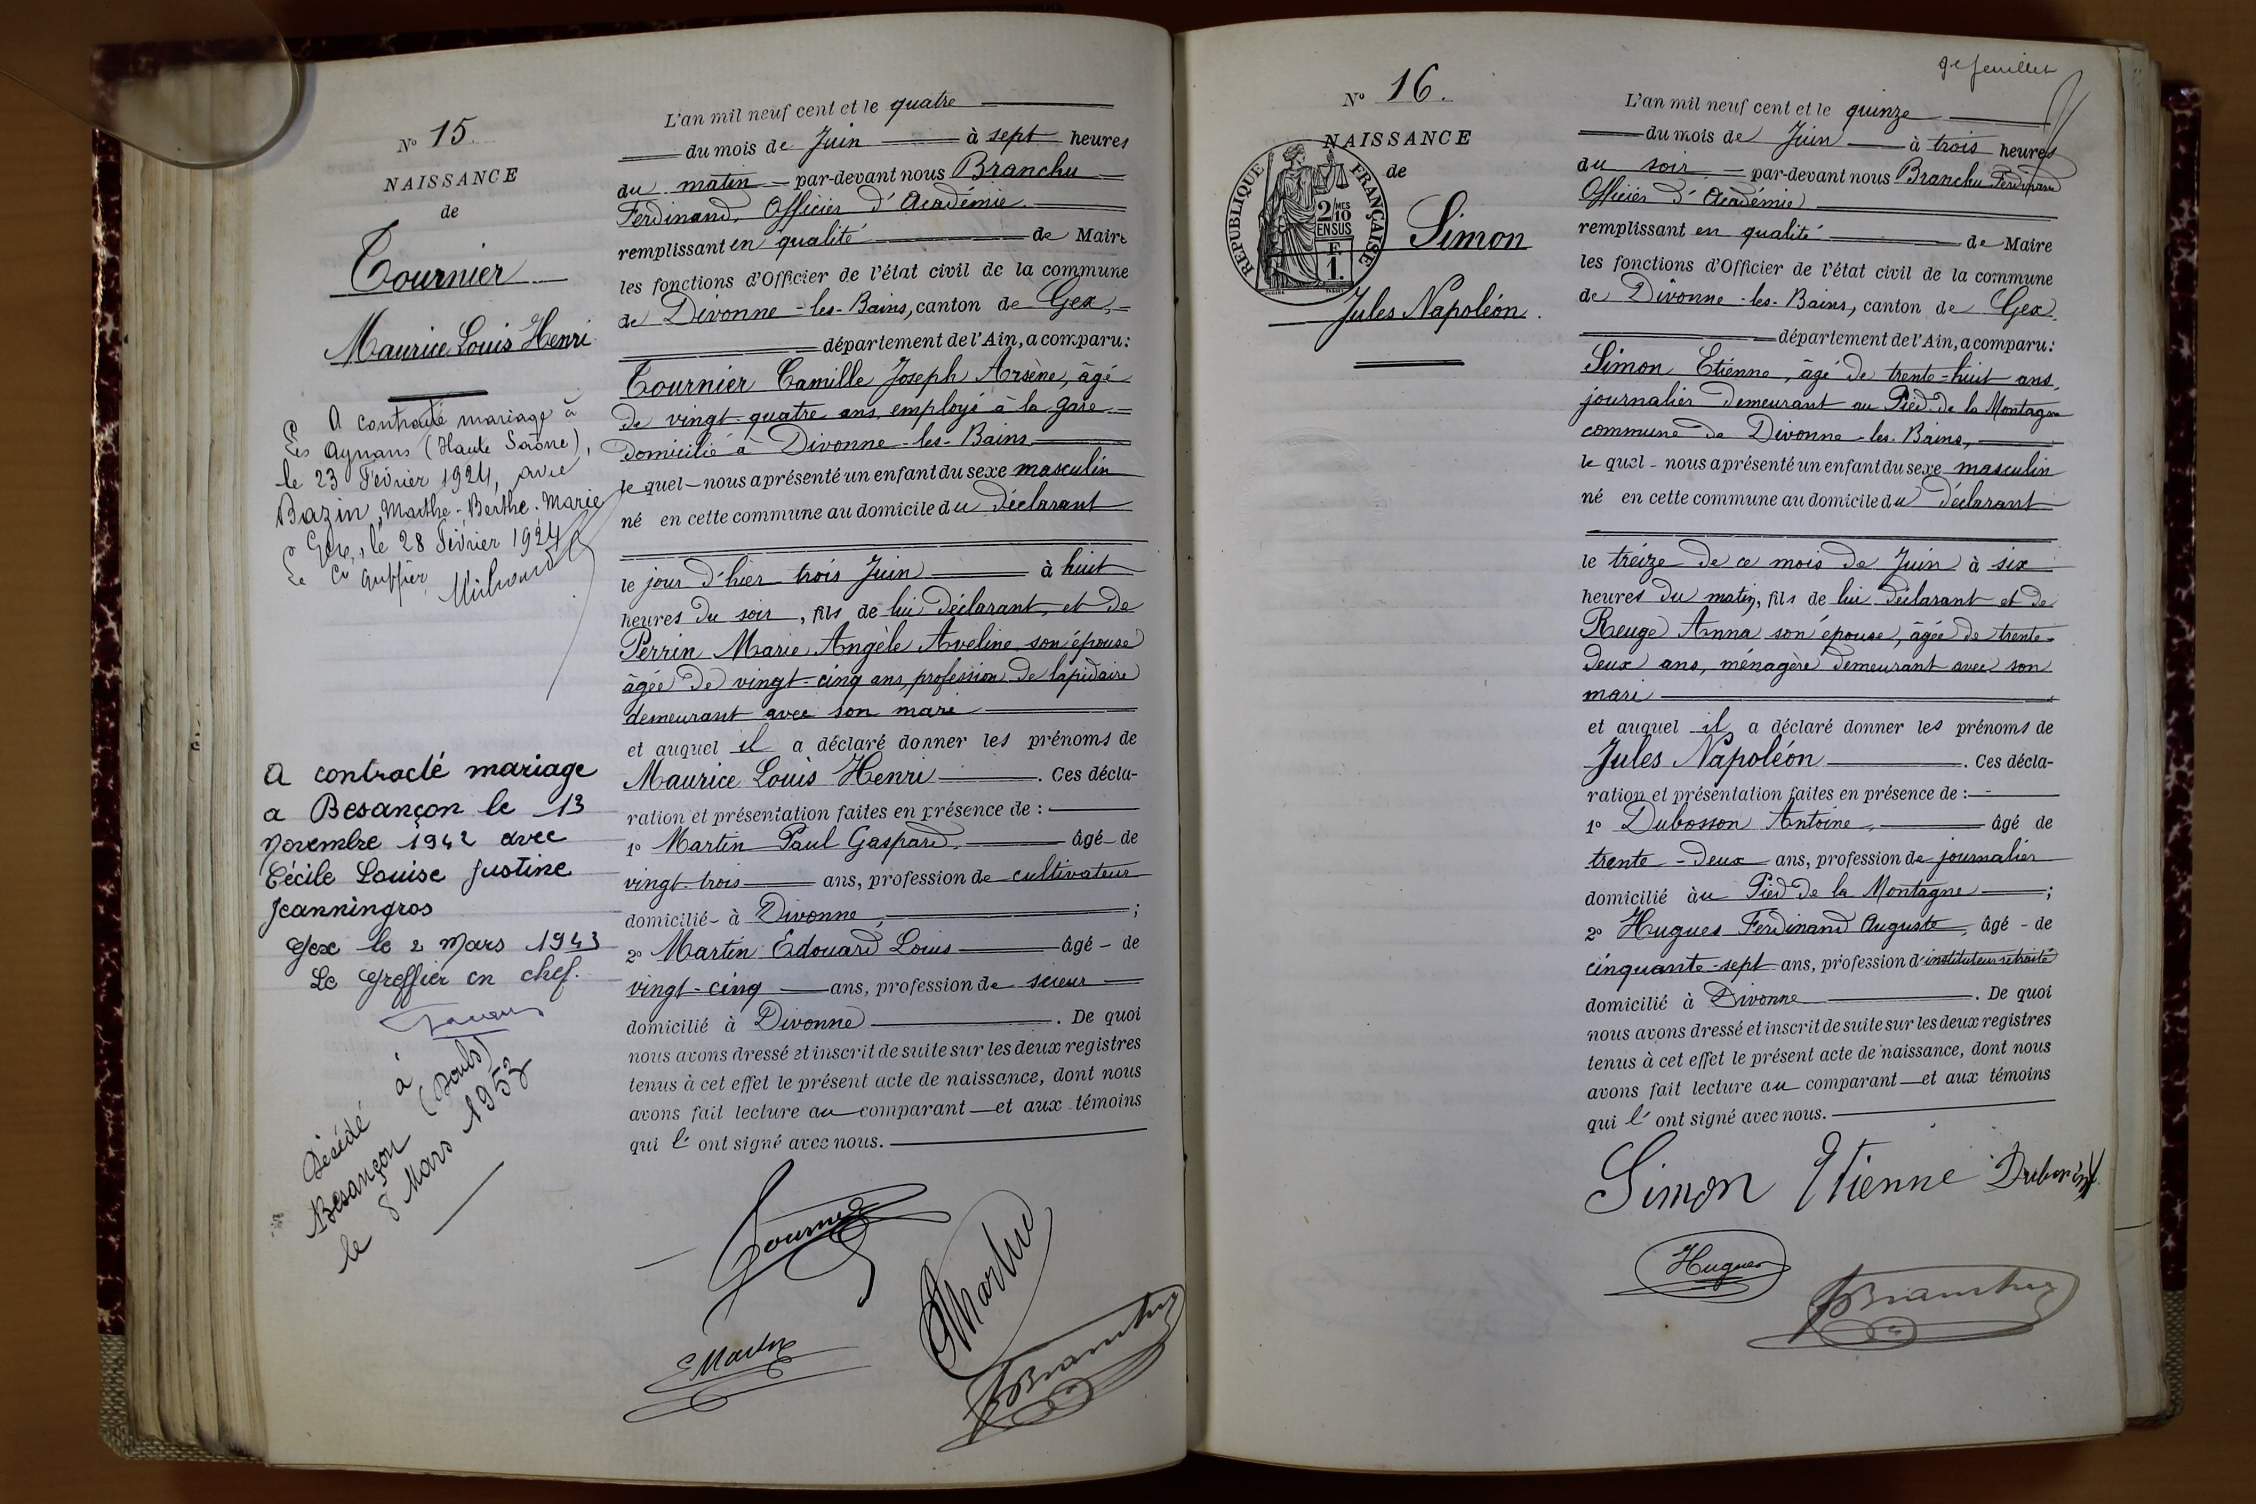 Nº 15.
NAISSANCE
de
Tournier
Maurice Louis Henri
A contracté mariage à
Les Aynans (Haute Saône),
le 23 Février 1924, avec
Bazin, Marthe-Berthe-Marie
Gex, le 28 Février 1924
Le Cis Greffier,
A contracté mariage
a Besançon le 13
Novembre 1942 avec
Cécile Louise Justine
Jeanningros
Gex le 2 Mars 1943
Le Greffier en chef.
Décédé à
Besançon (Doubs)
le 8 Mars 1953
L'an mil neuf cent et le quatre
du mois de Juin à sept heures
du matin par-devant nous Branchu
Ferdinand, Officier d'Académie
remplissant en qualité de Maire
les fonctions d'Officier de l'état civil de la commune
de Divonne-les-Bains, canton de Gex,
département de l'Ain, a comparu:
Tournier Camille Joseph Arsène, âgé
de vingt-quatre ans, employé à la gare
domicilié à Divonne-les-Bains
le quel nous a présenté un enfant du sexe masculin
né en cette commune au domicile du déclarant
le jour d'hier trois Juin à huit
heures du soir, fils de lui déclarant, et de
Perrin Marie Angèle Aveline son épouse
âgée de vingt-cinq ans, profession de lapidaire
demeurant avec son mari
et auquel il a déclaré donner les prénoms de
Maurice Louis Henri. Ces décla-
ration et présentation faites en présence de :
1º Martin Paul Gaspard, âgé de
vingt-trois ans, profession de cultivateur
domicilié à Divonne, ;
2º Martin Édouard Louis âgé de
vingt-cinq ans, profession de scieur
domicilié à Divonne. De quoi
nous avons dressé et inscrit de suite sur les deux registres
tenus à cet effet le présent acte de naissance, dont nous
avons fait lecture au comparant et aux témoins
qui l'ont signé avec nous.
Tournier
Martin
E Martin
Branchu
9e feuillet
Nº 16.
NAISSANCE
de
RÉPUBLIQUE FRANÇAISE
2/10 MES
EN SUS
F
1.
Simon
Jules Napoléon.
L'an mil neuf cent et le quinze
du mois de Juin à trois heures
du soir par-devant nous Branchu Ferdinand
Officier d'Académie
remplissant en qualité de Maire
les fonctions d'Officier de l'état civil de la commune
de Divonne-les-Bains, canton de Gex.
département de l'Ain, a comparu:
Simon Etienne, âgé de trente-huit ans,
journalier demeurant au Pied de la Montagne
commune de Divonne-les-Bains,
le quel nous a présenté un enfant du sexe masculin
né en cette commune au domicile du déclarant
le treize de ce mois de Juin à six
heures du matin, fils de lui déclarant et de
Reuge Anna son épouse, âgée de trente-
deux ans, ménagère demeurant avec son
mari
et auquel il a déclaré donner les prénoms de
Jules Napoléon. Ces décla-
ration et présentation faites en présence de :
1º Dubosson Antoine, âgé de
trente-deux ans, profession de journalier
domicilié au Pied de la Montagne ;
2º Hugues Ferdinand Auguste, âgé de
cinquante-sept ans, profession d'instituteur retraité
domicilié à Divonne. De quoi
nous avons dressé et inscrit de suite sur les deux registres
tenus à cet effet le présent acte de naissance, dont nous
avons fait lecture au comparant et aux témoins
qui l'ont signé avec nous.
Simon Etienne
Hugues
Branchu